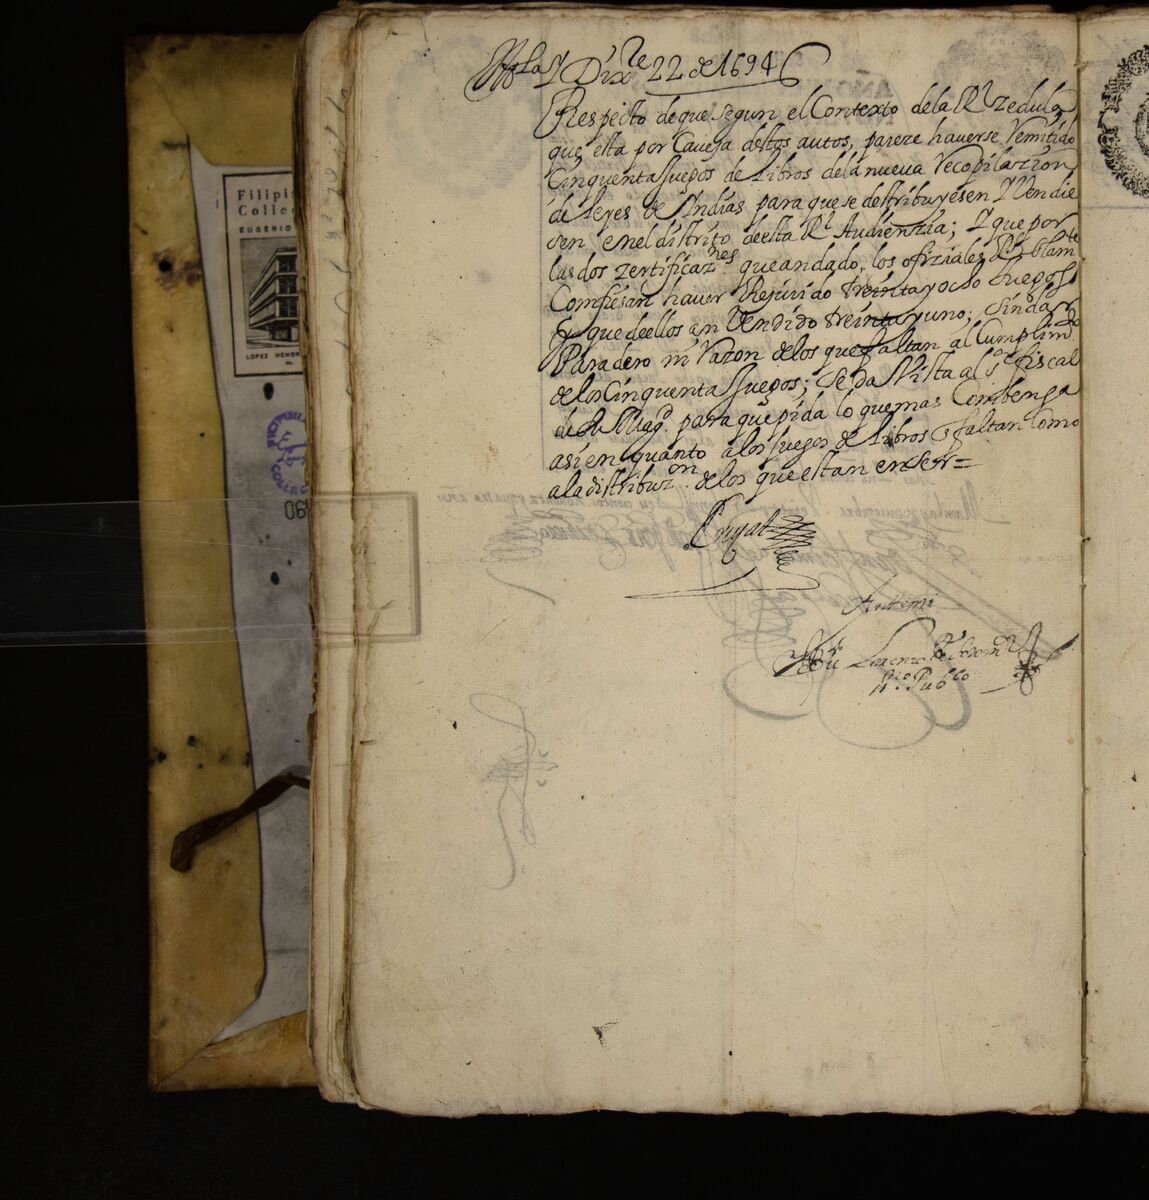 Mla y Dizre 22 de 1694
Respecto de que segun el Contexto de la Rl zedula
que esta por Caveza destos autos, pareze haverse Remitido
Cinquenta Juegos de Libros de la nueva Recopilazion
de leyes de Indias para que se destribuyesen y Vendie
sen en el distrito de esta Rl Audienzia; y que por
las dos zertificaznes que an dado, los ofiziales Rs solamte
Confiesan haver Rezivido treinta y ocho Juegos
y que de ellos an Vendido treinta y uno; sin dar
Paradero ni razon de los que faltan al Cumplimdo
de los Cinquenta Juegos; Se da Vista al sor fiscal
de su Magd. para que pida lo que mas Combenga
asi en quanto a los Juegos de Libros q faltan como
a la distribuzon de los que estan en ser=
Ante mi
Lorenzo
No. Pubco
Filipi
Collec
EUGENIO
LOPEZ MEMOR
90